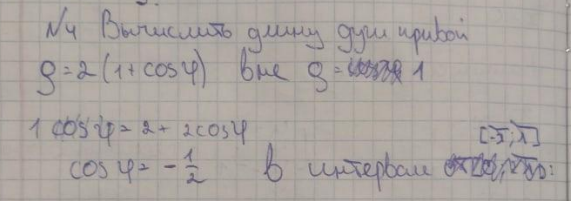 N4 Вычислить длину дуги кривой
ρ=2(1+cosφ) вне ρ= 1
1 = 2+2cosφ
[-π;π]
cosφ=-1/2 в интервале :